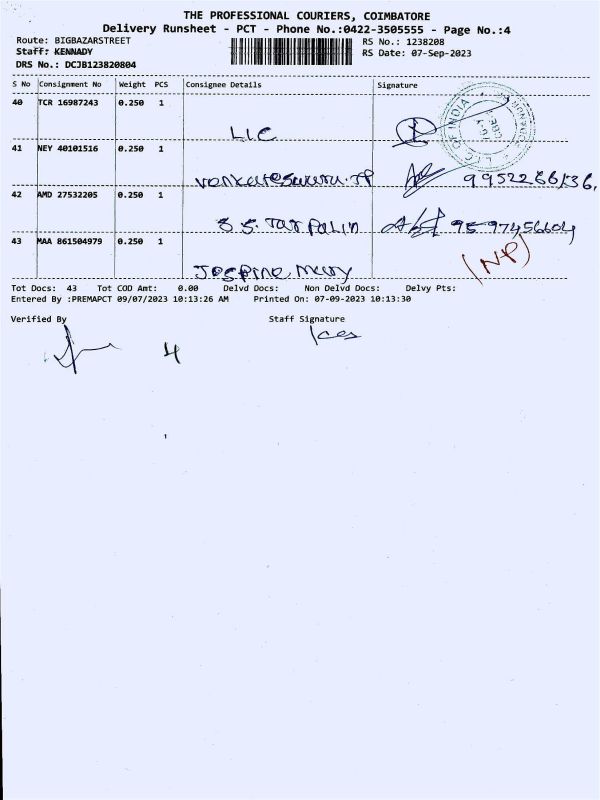 THE PROFESSIONAL COURIERS, COIMBATORE
Delivery Runsheet - PCT - Phone No.:0422-3505555 - Page No.:4
Route: BIGBAZARSTREET RS No.: 1238208
Staff: KENNADY RS Date: 07-Sep-2023
DRS No.: DCJB123820804
S No Consignment No Weight PCS Consignee Details Signature
40 TCR 16987243 0.250 1
LIC
41 NEY 40101516 0.250 1
9952266136.
42 AMD 27532205 0.250 1
S S. Tar Palin 9597456604
43 MAA 861504979 0.250 1
(NP)
Jospine Mary
Tot Docs: 43 Tot COD Amt: 0.00 Delvd Docs: Non Delvd Docs: Delvy Pts:
Entered By :PREMAPCT 09/07/2023 10:13:26 AM Printed On: 07-09-2023 10:13:30
Verified By Staff Signature
4